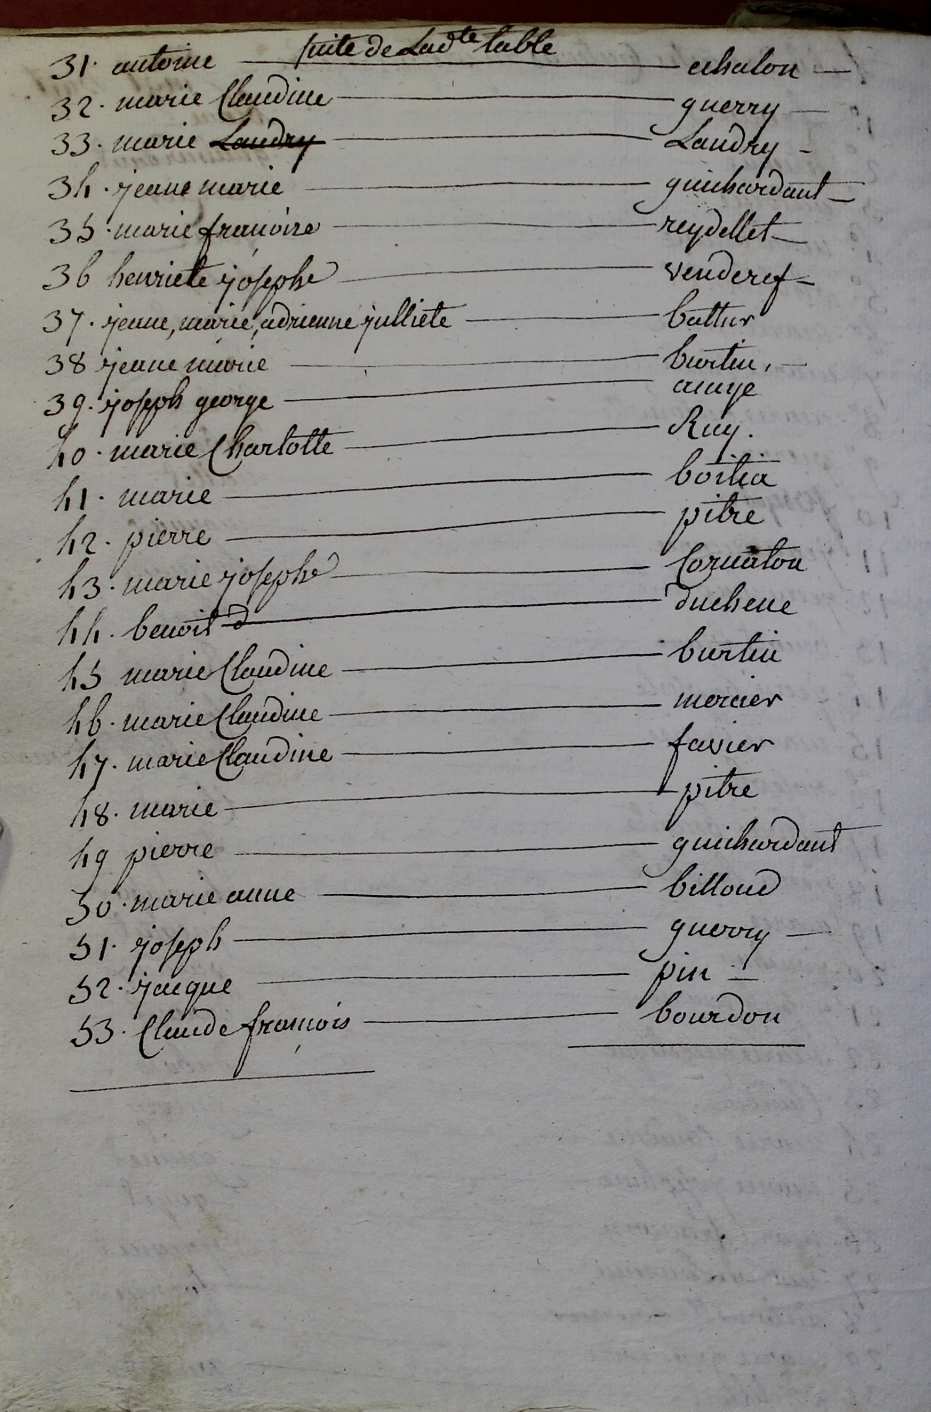 suite de Ladte table
31. antoine chalon
32. marie Claudine guerry
33. marie Landry Landry
34. jeane marie guichardant
35. marie franoise reydellet
36 henriete josephe venderef
37. jeane, marie, adrienne julliete battur
38 jeane marie burtin,
39. joseph george
40. marie Charlotte Ruy.
41. marie
42. pierre pitre
43. marie josephe Cornaton
44. benoit d duchene
45 marie Claudine burtin
46. marie Claudine mercier
47. marie Claudine favier
48. marie pitre
49 pierre guichardant
50. marie anne billoud
51. joseph guerry
52. jacque pin
53. Claude franois bourdon